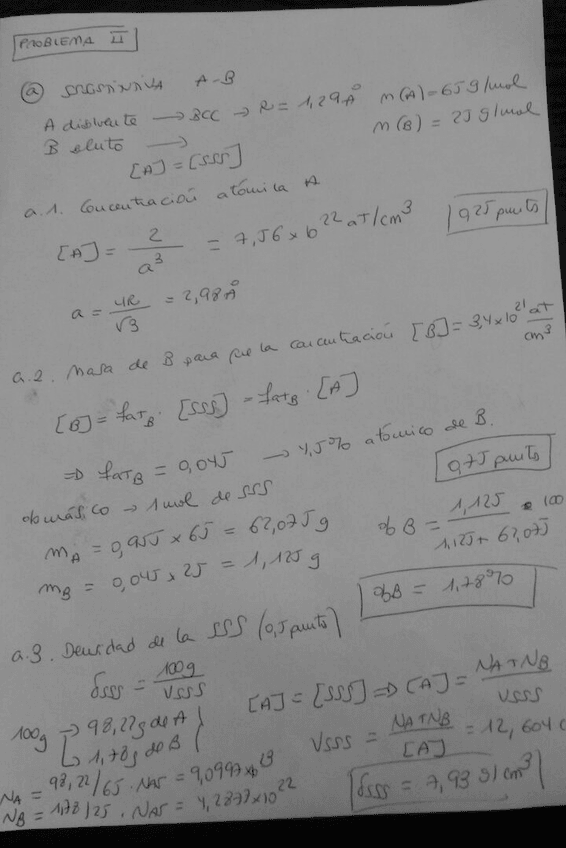 PROBLEMA II
(a) SUSTITUTIVA A-B
A disolvente → BCC → R = 1,29 Å m(A) = 65 g/mol
B soluto → m(B) = 25 g/mol
[A] = [SSS]
a.1. Concentración atómica A
[A] = 2/a³ = 7,56 × 10²² at/cm³ 0,25 punto
a = 4R/√3 = 2,98 Å
a.2. Masa de B para que la concentración [B] = 3,4×10²¹ at/cm³
[B] = fatB · [SSS] = fatB · [A]
⇒ fatB = 0,045 → 4,5% atómico de B.
0,75 punto
% másico → 1 mol de SSS
mA = 0,955 × 65 = 62,075 g % B = 1,125/(1,125 + 62,075) · 100
mB = 0,045 × 25 = 1,125 g
%B = 1,78%
a.3. Densidad de la SSS (0,5 punto)
δSSS = 100g/VSSS [A] = [SSS] ⇒ [A] = (NA + NB)/VSSS
100g → 98,22 g de A
↳ 1,78 g de B VSSS = (NA + NB)/[A] = 12,604 c
NA = 98,22/65 · NAv = 9,0997×10²³
NB = 1,78/25 · NAv = 4,2877×10²² δSSS = 7,93 g/cm³